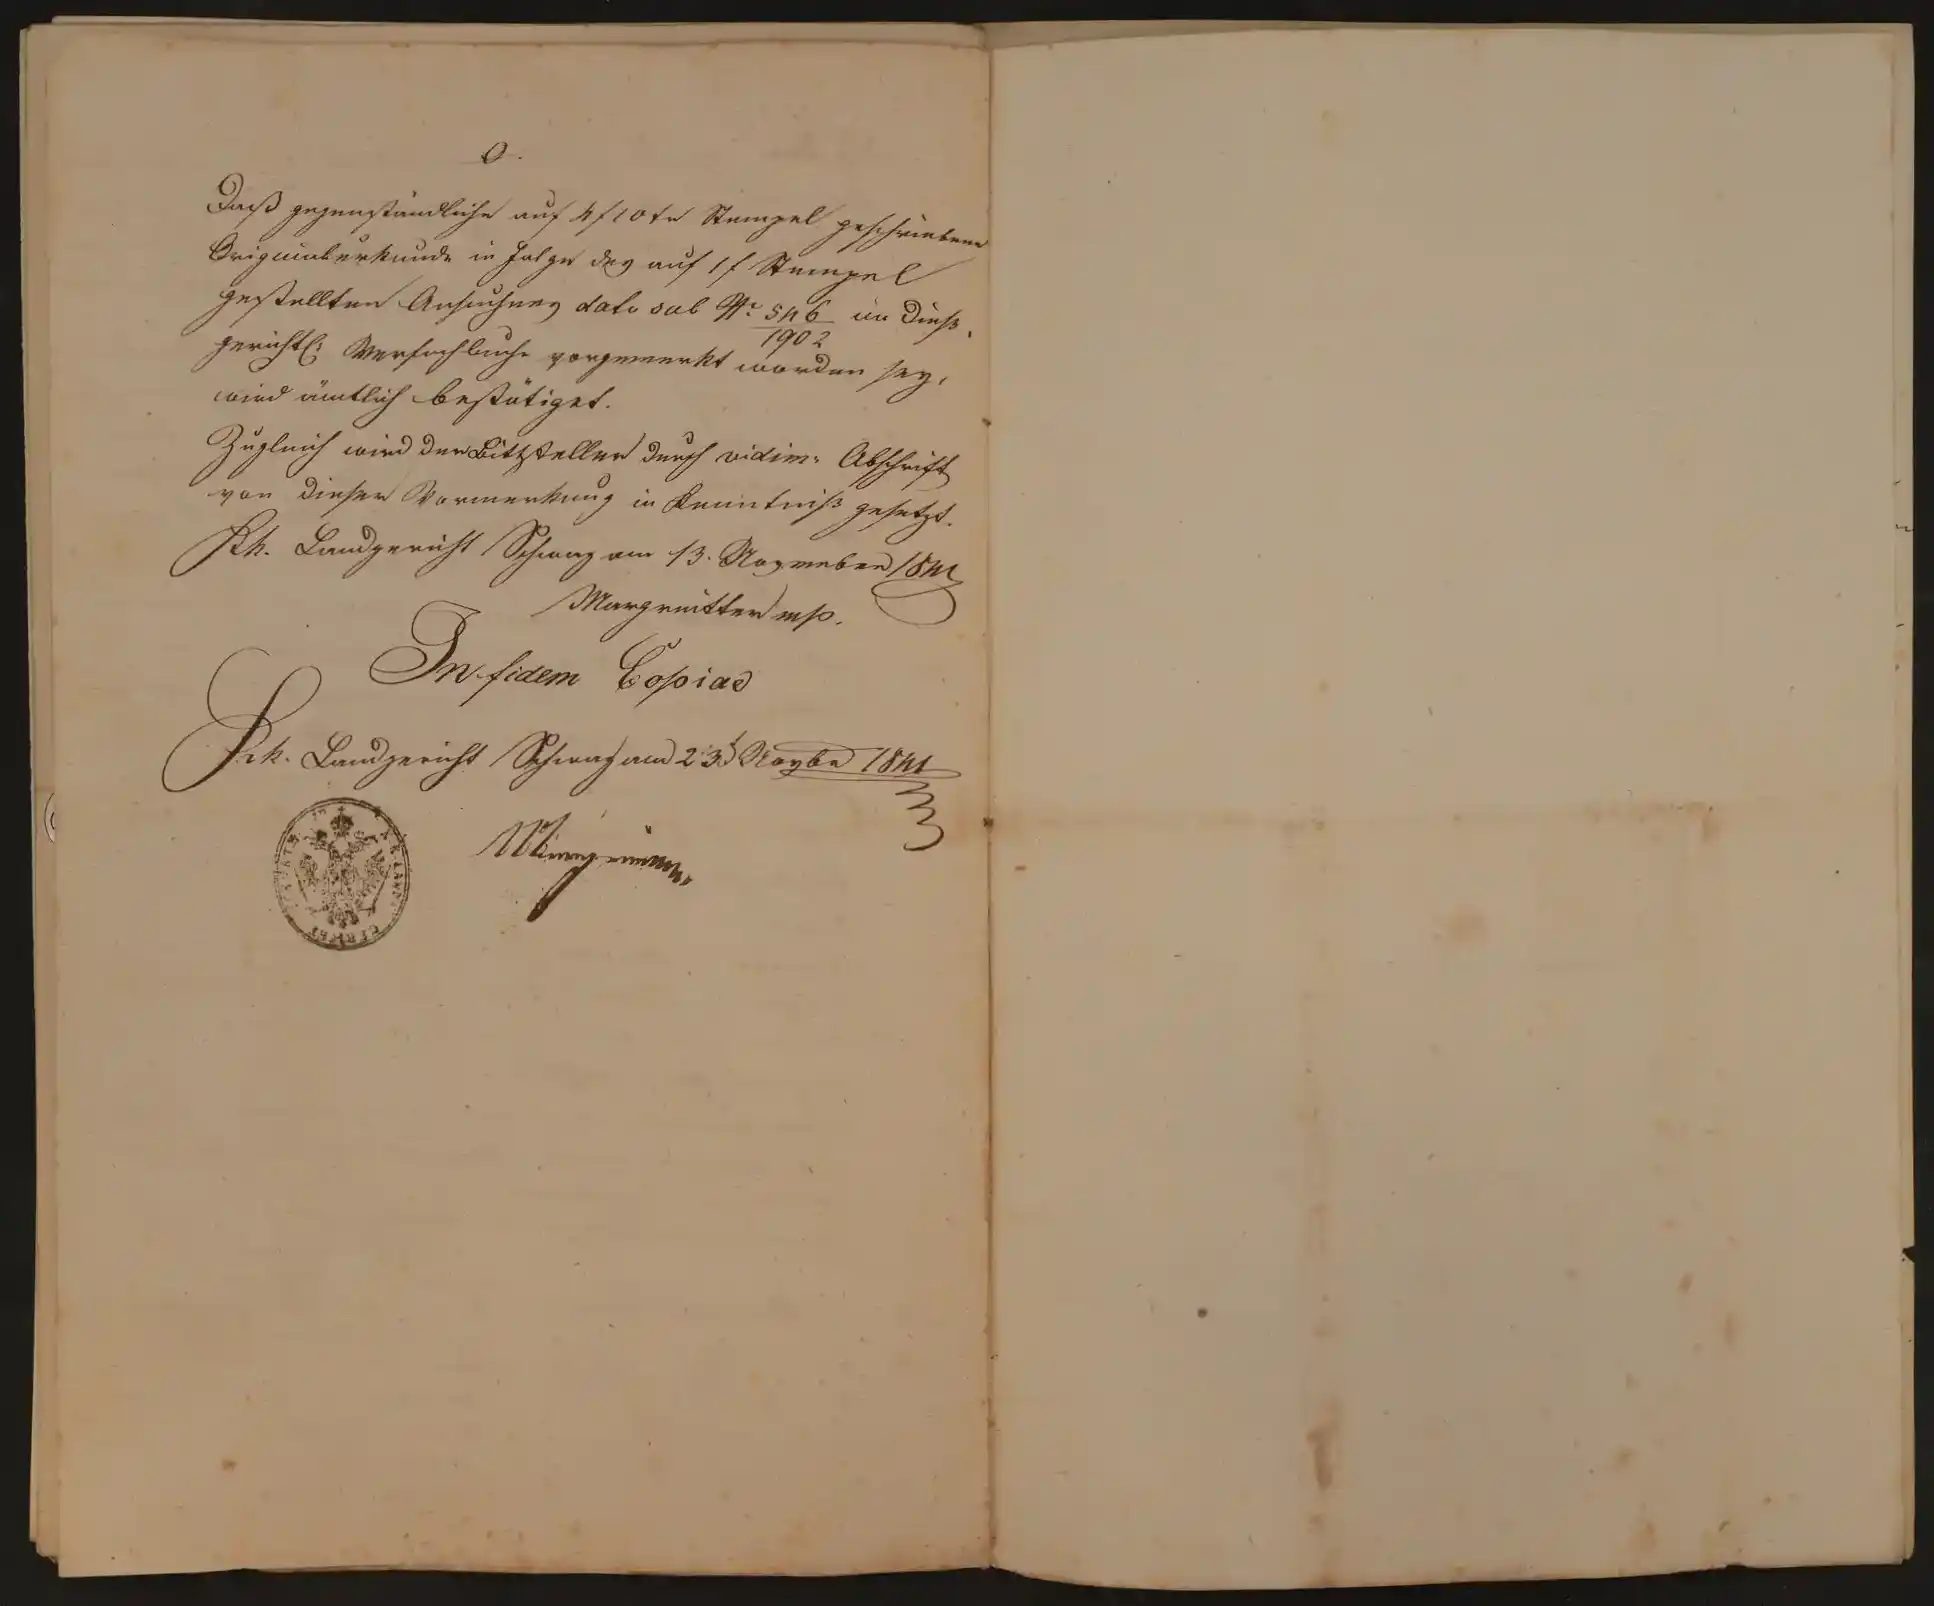 O.
Daß gegenständliche auf 4 f 10 kr Stempel geschriebene
Originalurkunde in Folge des auf 1 f Stempel
gestellten Ansuchens dato sub No 546/1902 im dieß-
gerichtl: Verfachbuche vorgemerkt worden sey,
wird ämtlich bestätiget.
Zugleich wird der Bittsteller durch vidim: Abschrift
von dieser Vormerkung in Kenntniß gesetzt.
Kk. Landgericht Schwaz am 13. November 1841
Margreitter mp.
In fidem Copiae
Kk. Landgericht Schwaz am 23t Novbr 1841